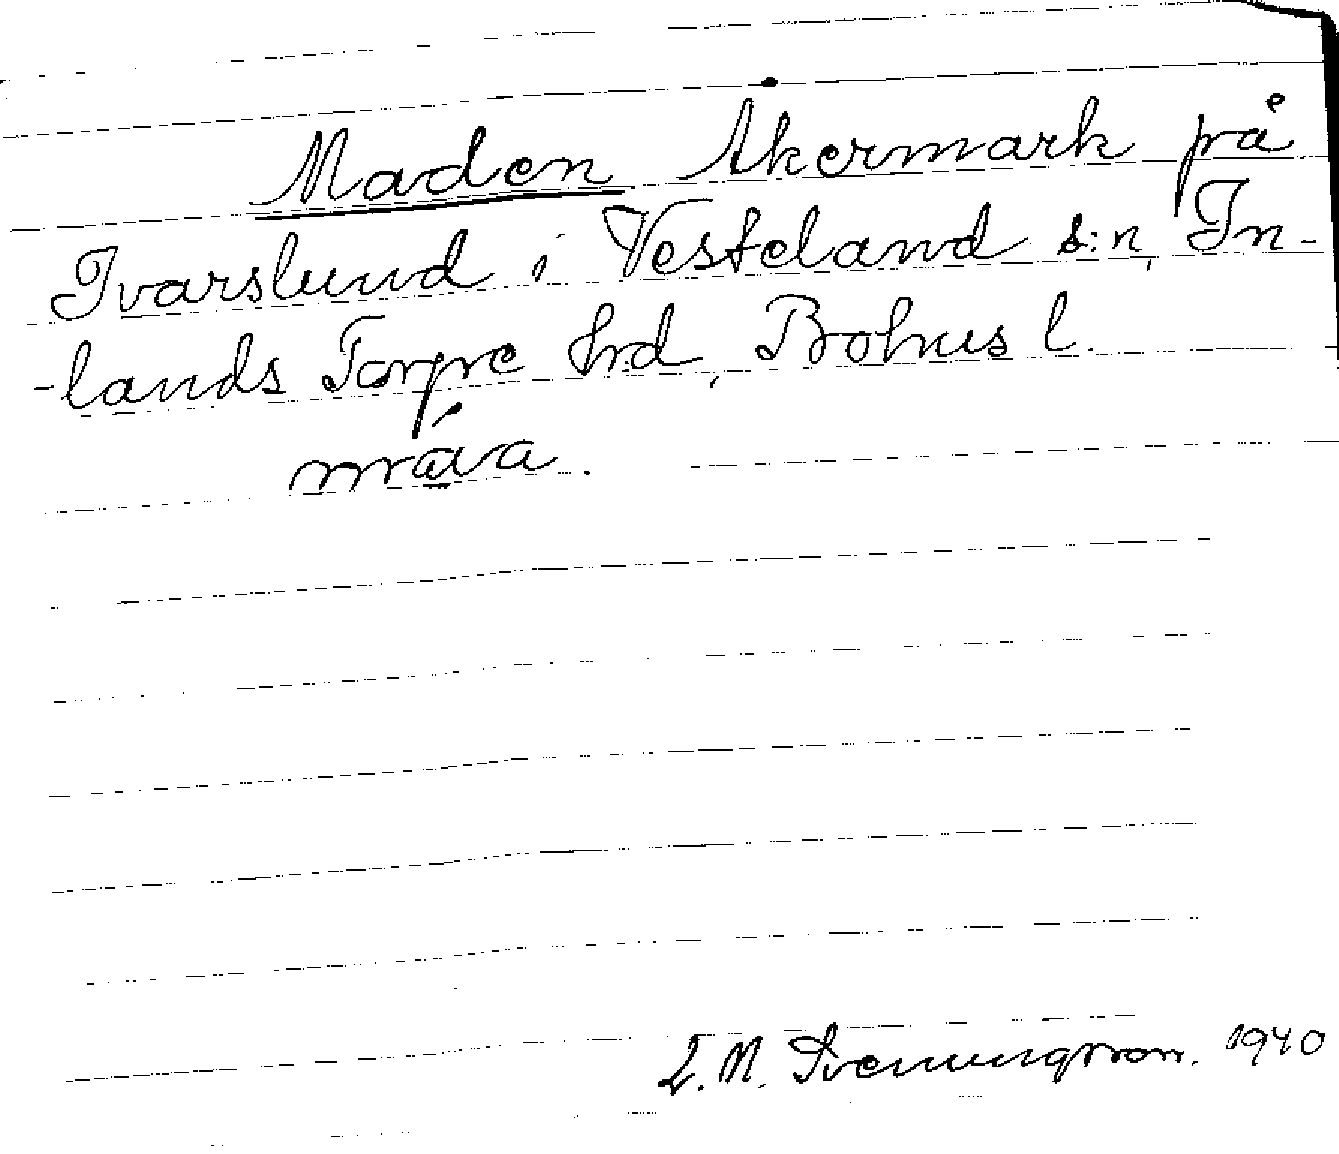 Maden Åkermark på
Ivarslund i Vesteland s:n, In-
-lands Torpe hrd, Bohus l.
máa.
L. N. Svenungsson. 1940